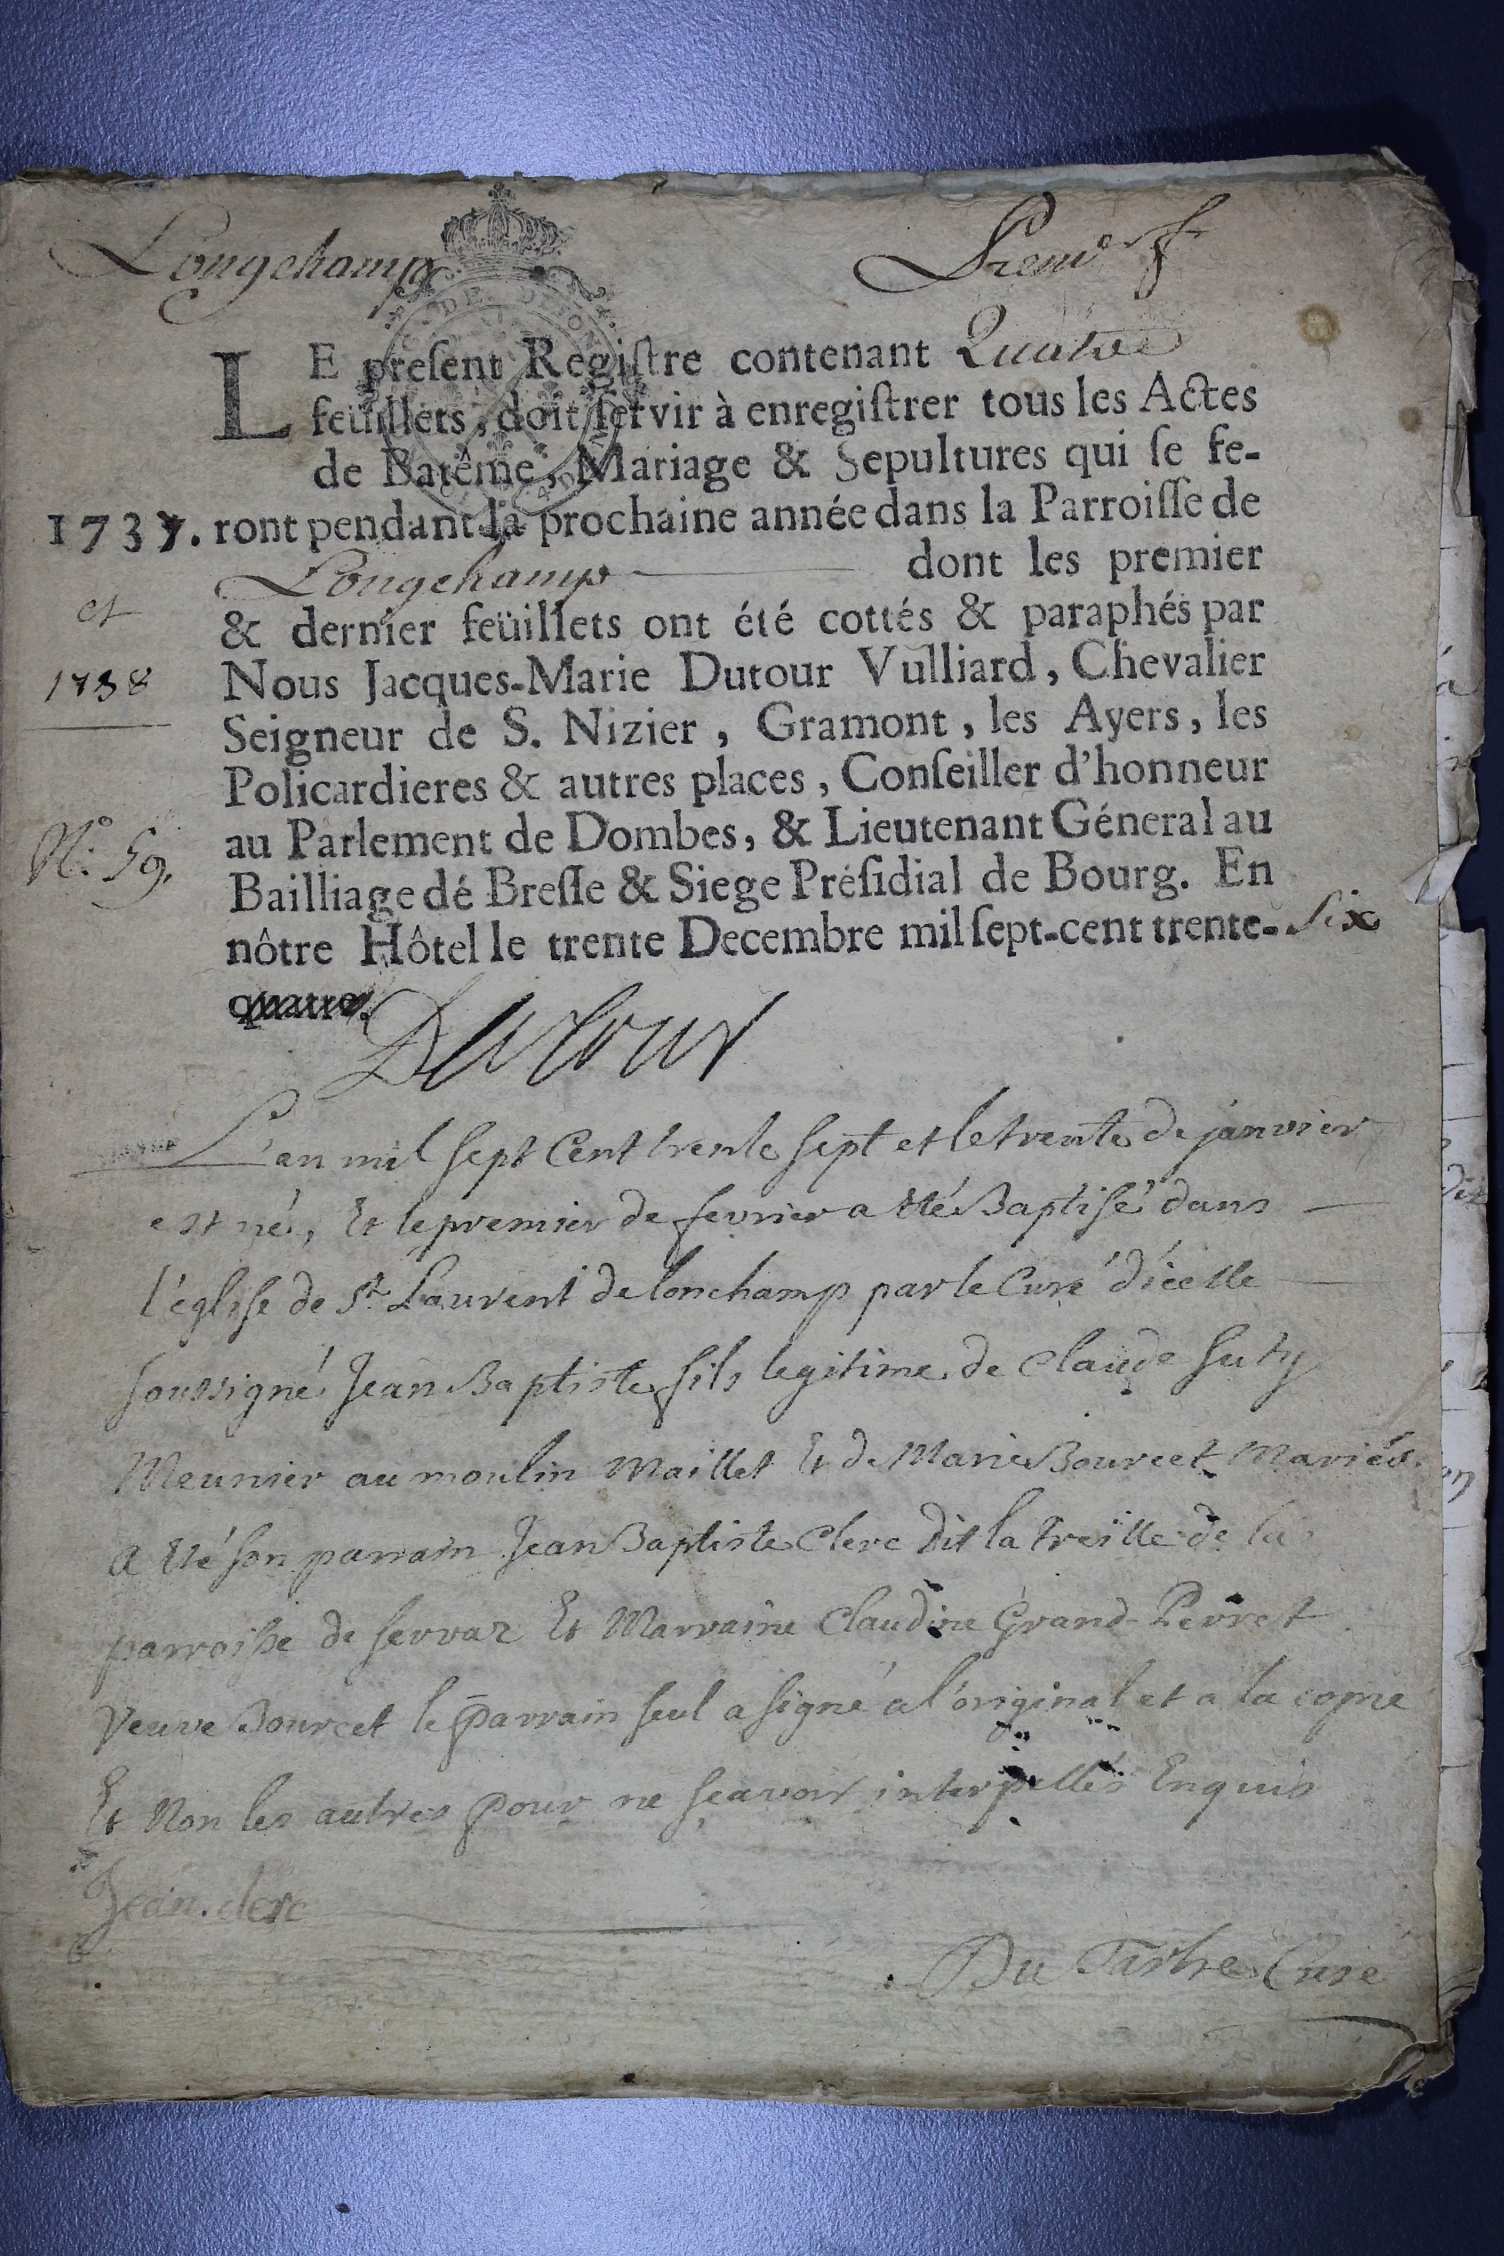 Longchamp Premr f
LE preſent Regiſtre contenant Quatre
feüillets, doit ſervir à enregiſtrer tous les Actes
de Batême, Mariage & Sepultures qui ſe fe-
1737. ront pendant la prochaine année dans la Parroiſſe de
Longchamp dont les premier
et
& dernier feüillets ont été cottés & paraphés par
1738 Nous Jacques-Marie Dutour Vulliard, Chevalier
Seigneur de S. Nizier, Gramont, les Ayers, les
Policardieres & autres places, Conſeiller d'honneur
No. 59. au Parlement de Dombes, & Lieutenant Géneral au
Bailliage dé Breſſe & Siege Préſidial de Bourg. En
nôtre Hôtel le trente Decembre mil ſept-cent trente-six
quatre.
Dutour
L'an mil sept Cent trente sept et le trente de janvier
est né, Et le premier de fevrier a été Baptisé dans
l'église de St Laurent de lonchamp par le Curé d'icelle
soussigné Jean Baptiste fils legitime de Claude Suty
Meunier au moulin Maillet Et de Marie Bourcet Mariés.
a été son parrain Jean Baptiste Clerc dit la treille de la
parroisse de servaz Et Marraine Claudine Grand-Perret
Veuve Bourcet le parrain seul a signé a l'original et a la copie
Et Non les autres pour ne sçavoir interpellés Enquis
Jean. clerc
Du Tartre Curé